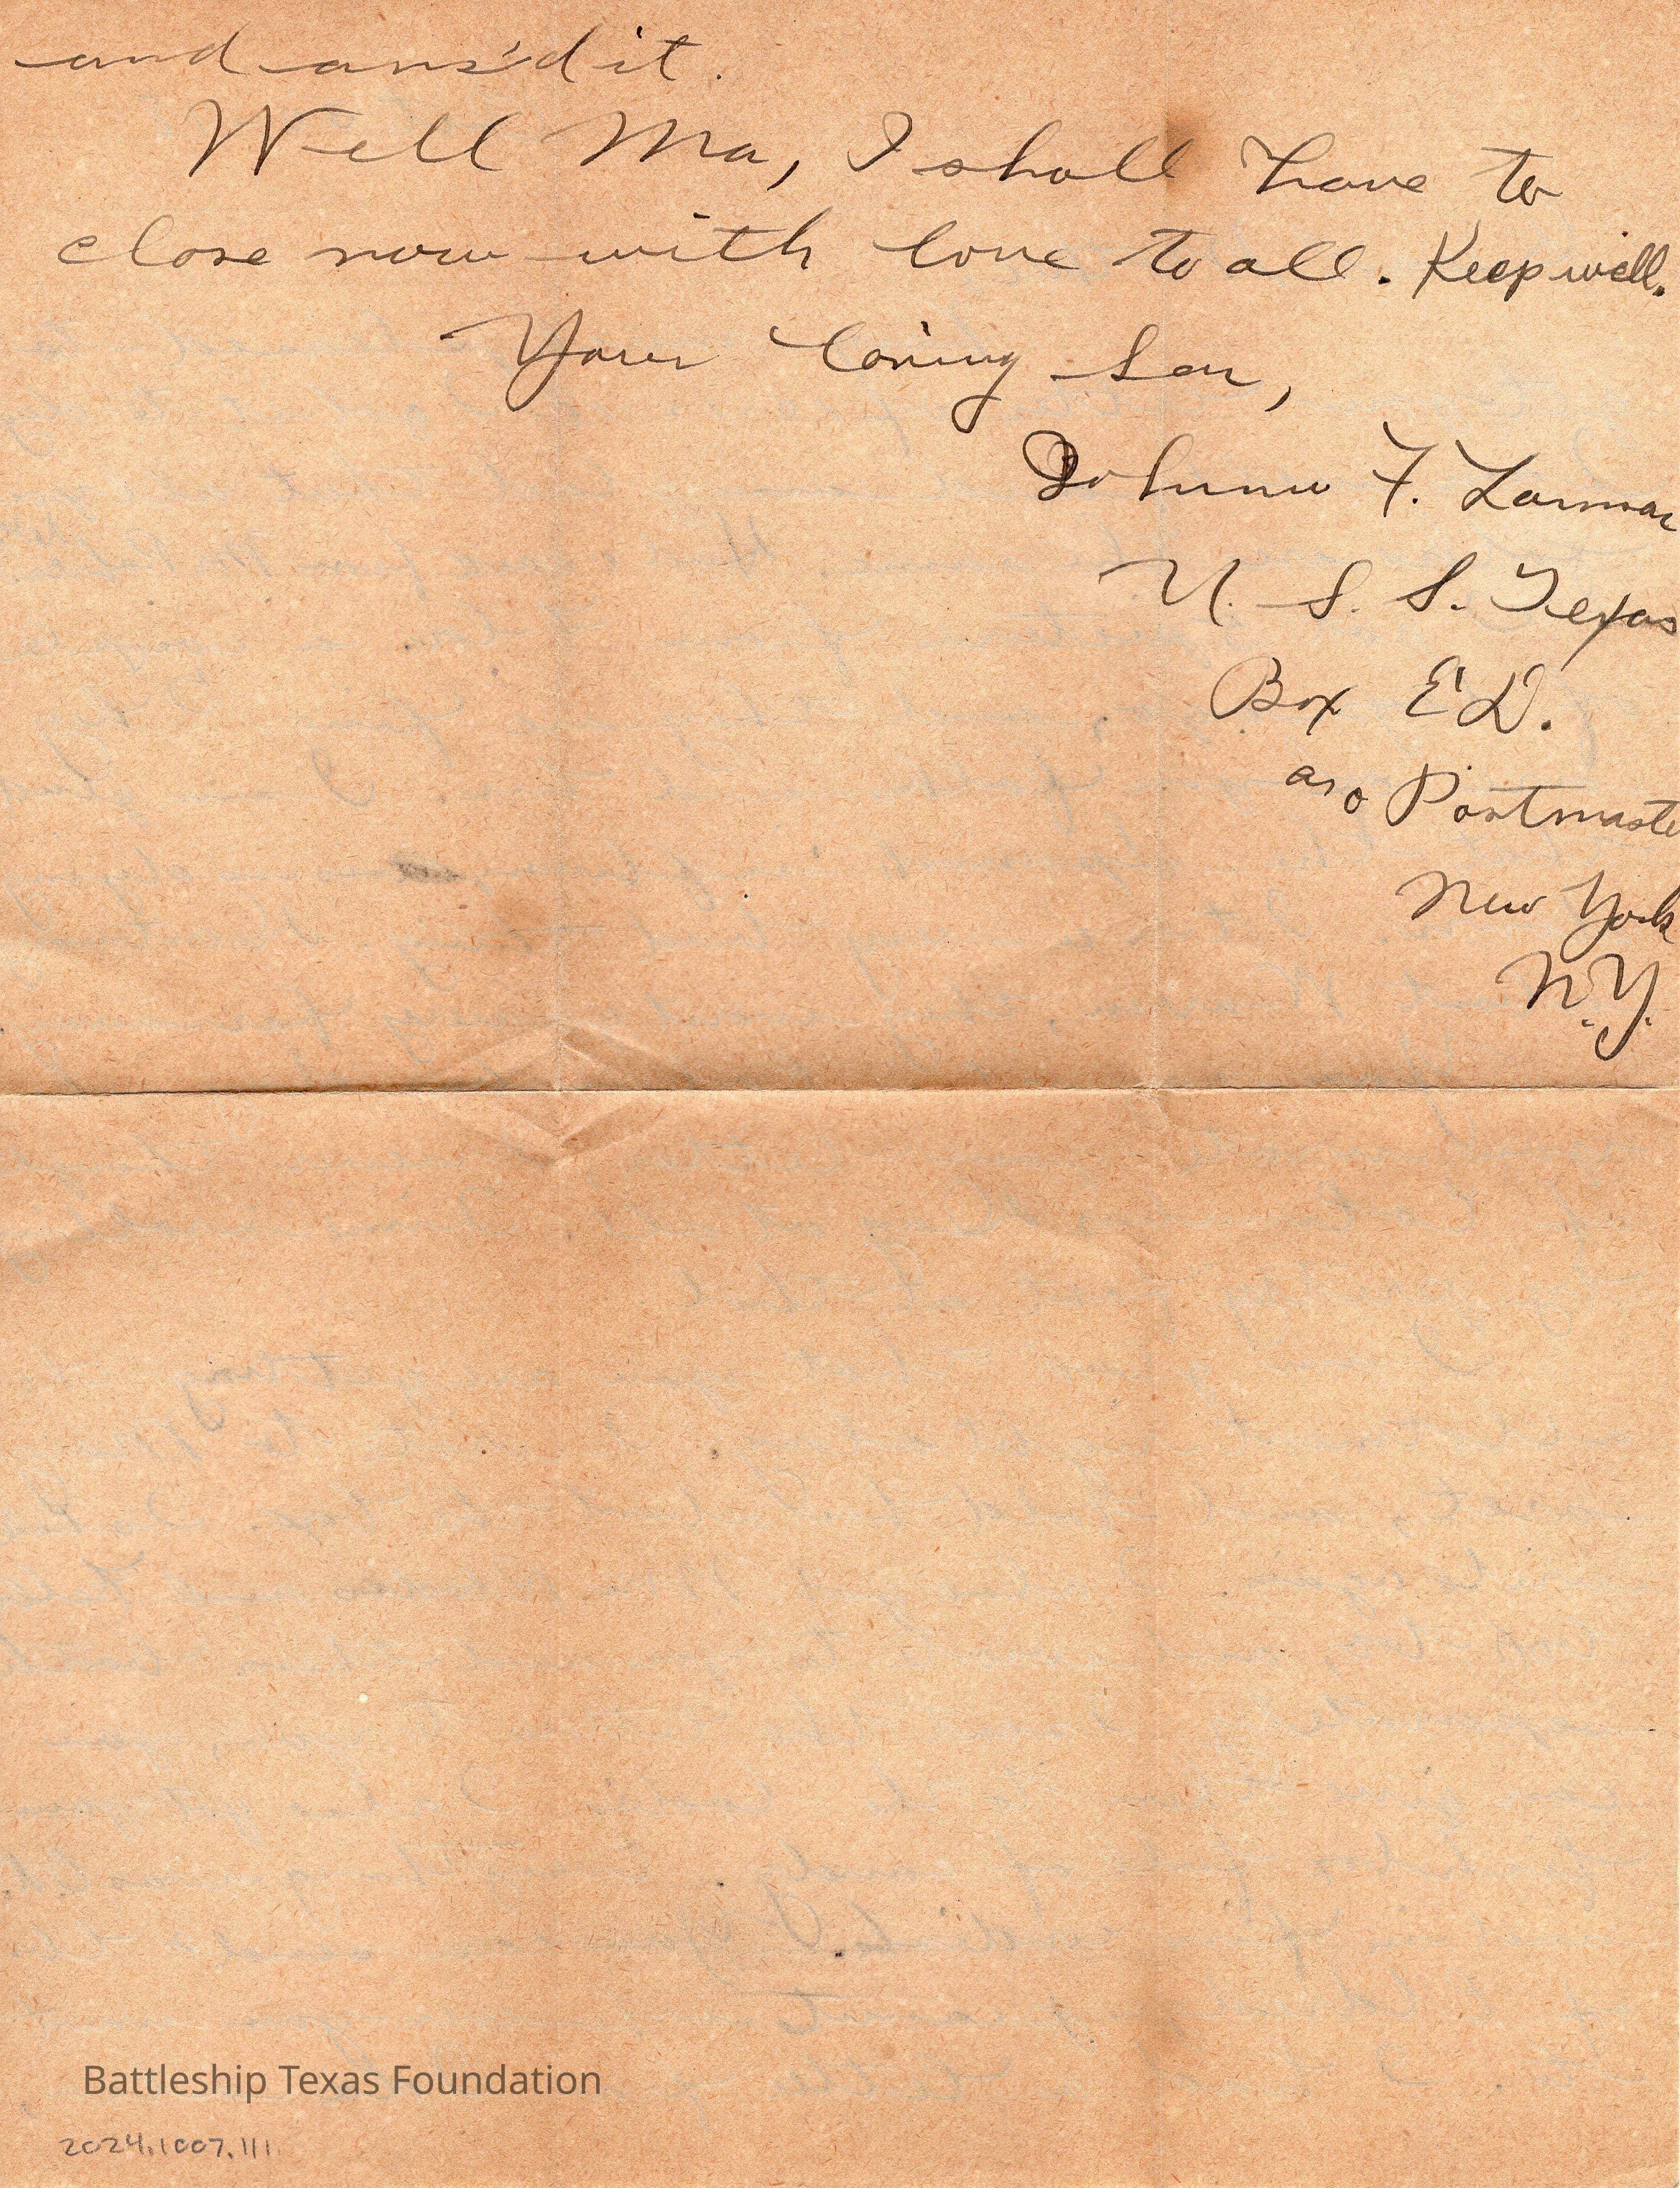 and ans'd it.
Well Ma, I shall have to
close now with love to all. Keep well.
Your loving Son,
Johnnie F. Larmac
U. S. S. Texas
Box E'D.
Postmaste
New York
N.Y.
Battleship Texas Foundation
2024.1007.111